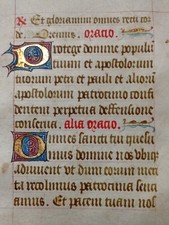 Et gloriamini omnes recti cor
de. Oremus. oracio.
Protege domine populū
tuum et apostolorum
tuorum petri et pauli et alioꝝ
apostolorum patrocinio confi
dentem perpetua deffensione
conserua. alia oracio.
Omnes sancti tui quesu
mus domine nos vbiqꝫ
adiuuent vt dum eorum meri
ta recolimus patrocinia senci
amus. Et pacem tuam nos